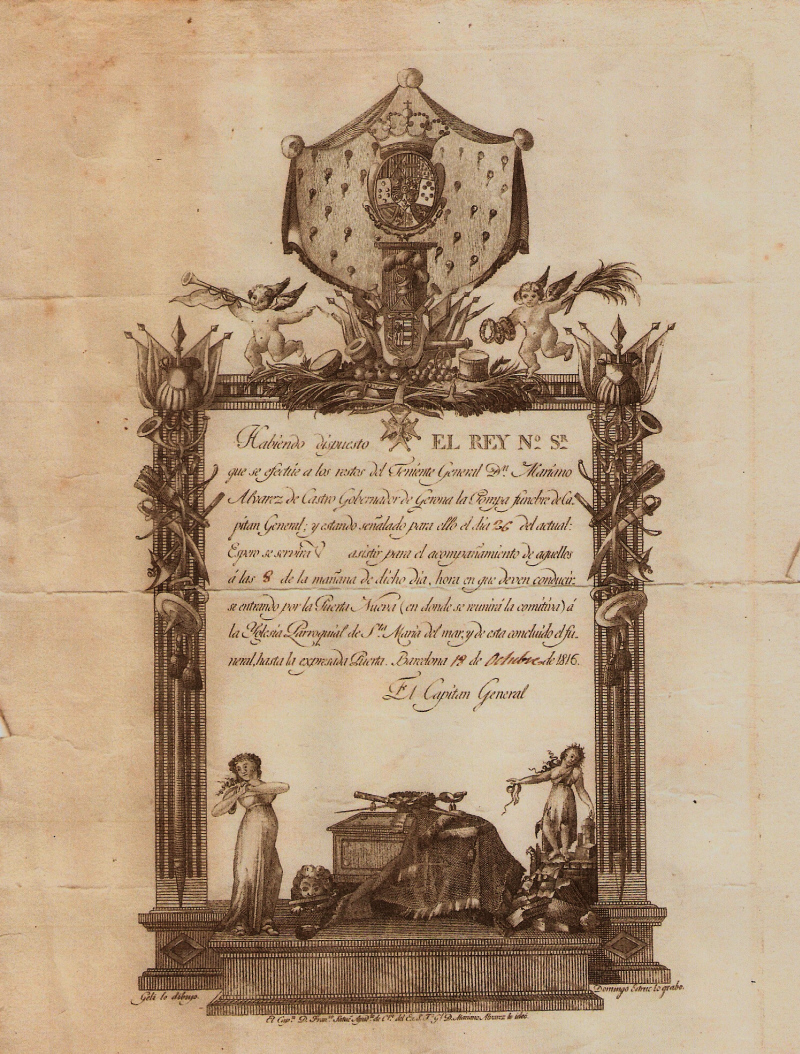 Habiendo dispuesto EL REY Nº. Sr.
que se efectúe a los restos del Teniente General Dn. Mariano
Alvarez de Castro Gobernador de Gerona la Pompa funebre de Ca-
pitan General; y estando señalado para ello el dia 26 del actual:
Espero se servirá V asistir para el acompañamiento de aquellos
á las 8 de la mañana de dicho dia, hora en que deven conducir-
se entrando por la Puerta Nueva (en donde se reunirá la comitiva) á
la Yglesia Parroquial de Sta. Maria del mar, y de esta concluido el fu-
neral, hasta la expresada Puerta. Barcelona 18 de Octubre de 1816.
El Capitan General
lo dibujo.
Domingo Estruc lo grabo.
El Capn. D. Franco. Ayud. de del Ex. S. T. Gl. D. Mariano Alvarez lo ideó.